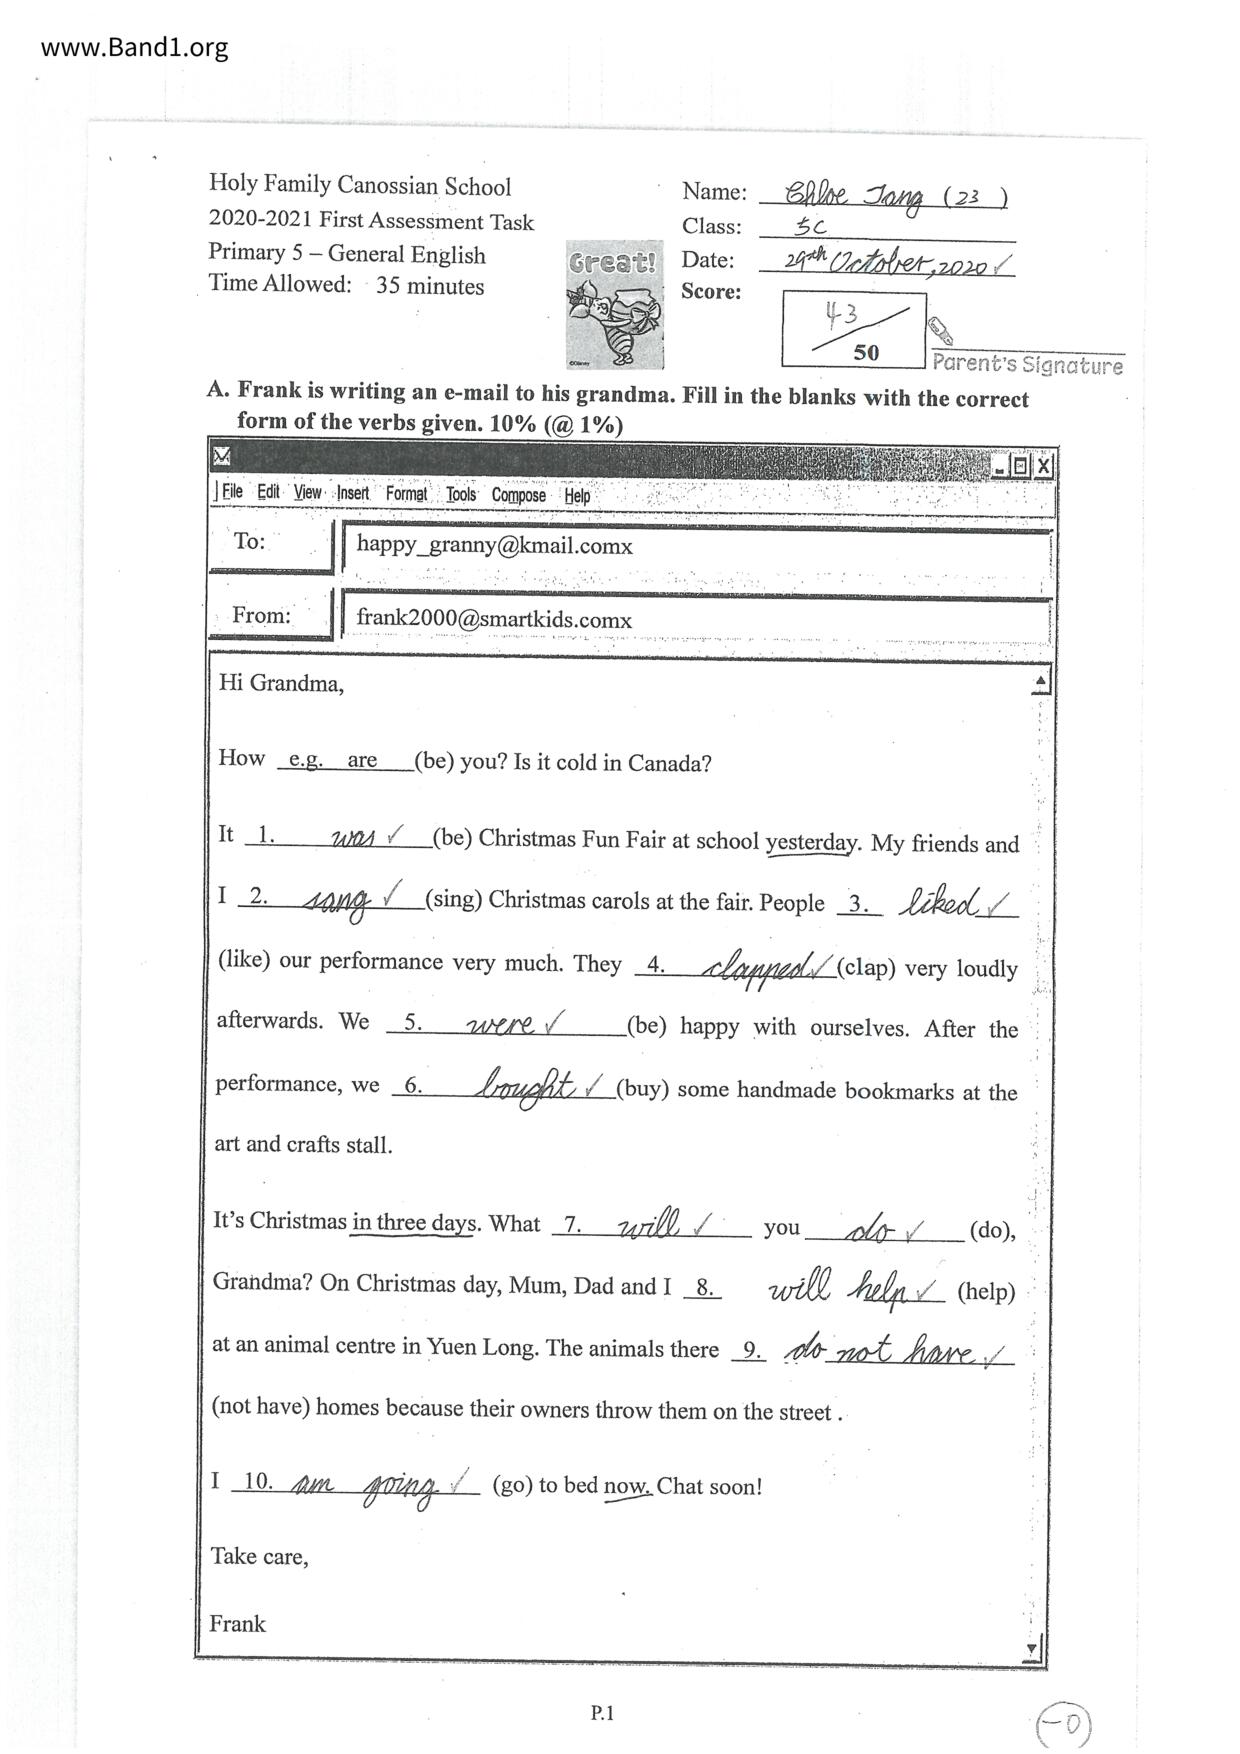 www.Band1.org
Holy Family Canossian School
2020-2021 First Assessment Task
Primary 5 – General English
Time Allowed: 35 minutes
Great!
©Disney
Name: Chloe Tang (23)
Class: 5C
Date: 29th October, 2020 ✓
Score:
43
50
Parent's Signature
A. Frank is writing an e-mail to his grandma. Fill in the blanks with the correct
form of the verbs given. 10% (@ 1%)
File Edit View Insert Format Tools Compose Help
To: happy_granny@kmail.comx
From: frank2000@smartkids.comx
Hi Grandma,
How e.g. are (be) you? Is it cold in Canada?
It 1. was ✓ (be) Christmas Fun Fair at school yesterday. My friends and
I 2. sang ✓ (sing) Christmas carols at the fair. People 3. liked ✓
(like) our performance very much. They 4. clapped ✓ (clap) very loudly
afterwards. We 5. were ✓ (be) happy with ourselves. After the
performance, we 6. bought ✓ (buy) some handmade bookmarks at the
art and crafts stall.
It's Christmas in three days. What 7. will ✓ you do ✓ (do),
Grandma? On Christmas day, Mum, Dad and I 8. will help ✓ (help)
at an animal centre in Yuen Long. The animals there 9. do not have ✓
(not have) homes because their owners throw them on the street .
I 10. am going ✓ (go) to bed now. Chat soon!
Take care,
Frank
P.1
-0